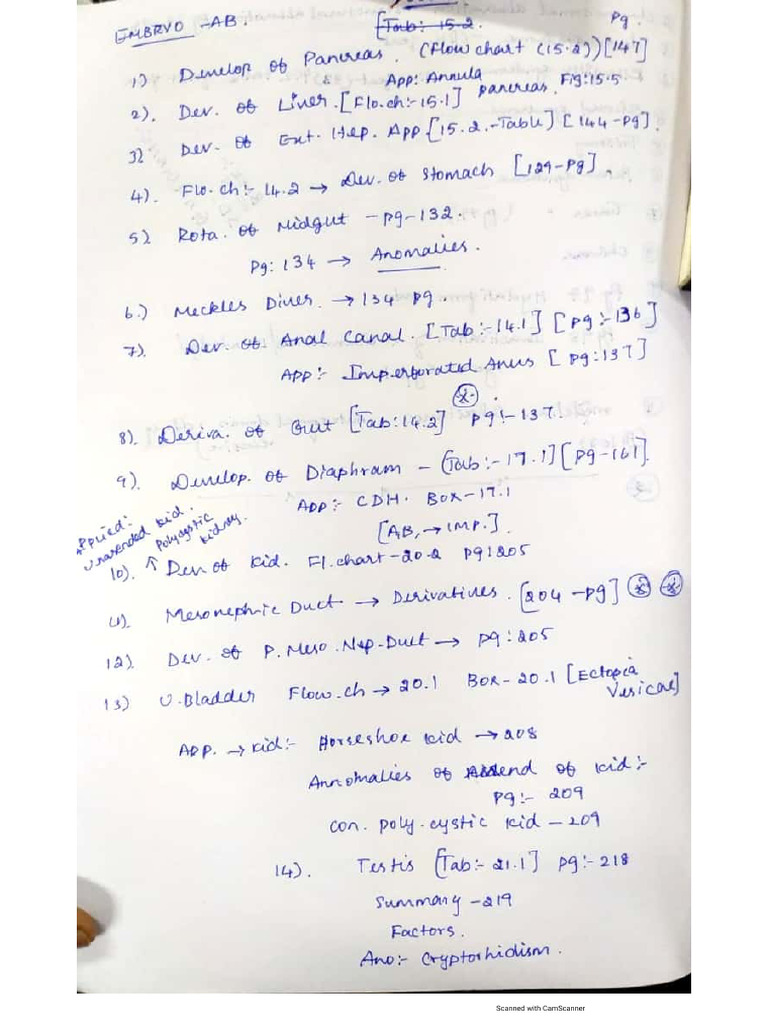 EMBRYO - AB. [Tab: 15.2. Pg.
1) Develop of Pancreas. (Flow chart (15.2)) [147]
App: Annula pancreas. Fig: 15.5
2). Dev. of Liver. [Flo.ch:- 15.1]
3) Dev. of Ext. Hep. App [15.2.-Table] [144-Pg].
4). Flo.ch:- 14.2 → Dev. of Stomach [129-Pg].
5) Rota. of Midgut - Pg-132.
Pg: 134 → Anomalies.
6.) Meckles Diver. → 134 Pg.
7). Dev. of Anal Canal. [Tab:-14.1] [Pg:-136]
App:- Imperforated Anus [Pg: 137]
8). Deriva. of Gut [Tab: 14.2] Pg:- 137.
9). Develop. of Diaphram - (Tab:- 17.1] [Pg-161].
App:- CDH. Box-17.1
[AB, → IMP.].
Applied:
Unascended kid.
↑ Polycystic
kidney.
10). Dev of kid. Fl.chart-20.2 Pg: 205
11). Mesonephric Duct → Derivatives. [204-Pg]
12). Dev. of P. Meso. Nep. Duct → Pg: 205
13) U. Bladder Flow.ch → 20.1 Box-20.1 [Ectopia
Vesicae]
App. → kid:- Horseshoe kid → 208
Annomalies of Ascend of kid:-
Pg:- 209
Con. poly.cystic kid - 209
14). Testis [Tab:- 21.1] Pg:- 218
Summary - 219
Factors.
Ano:- Cryptorhidism.
Scanned with CamScanner